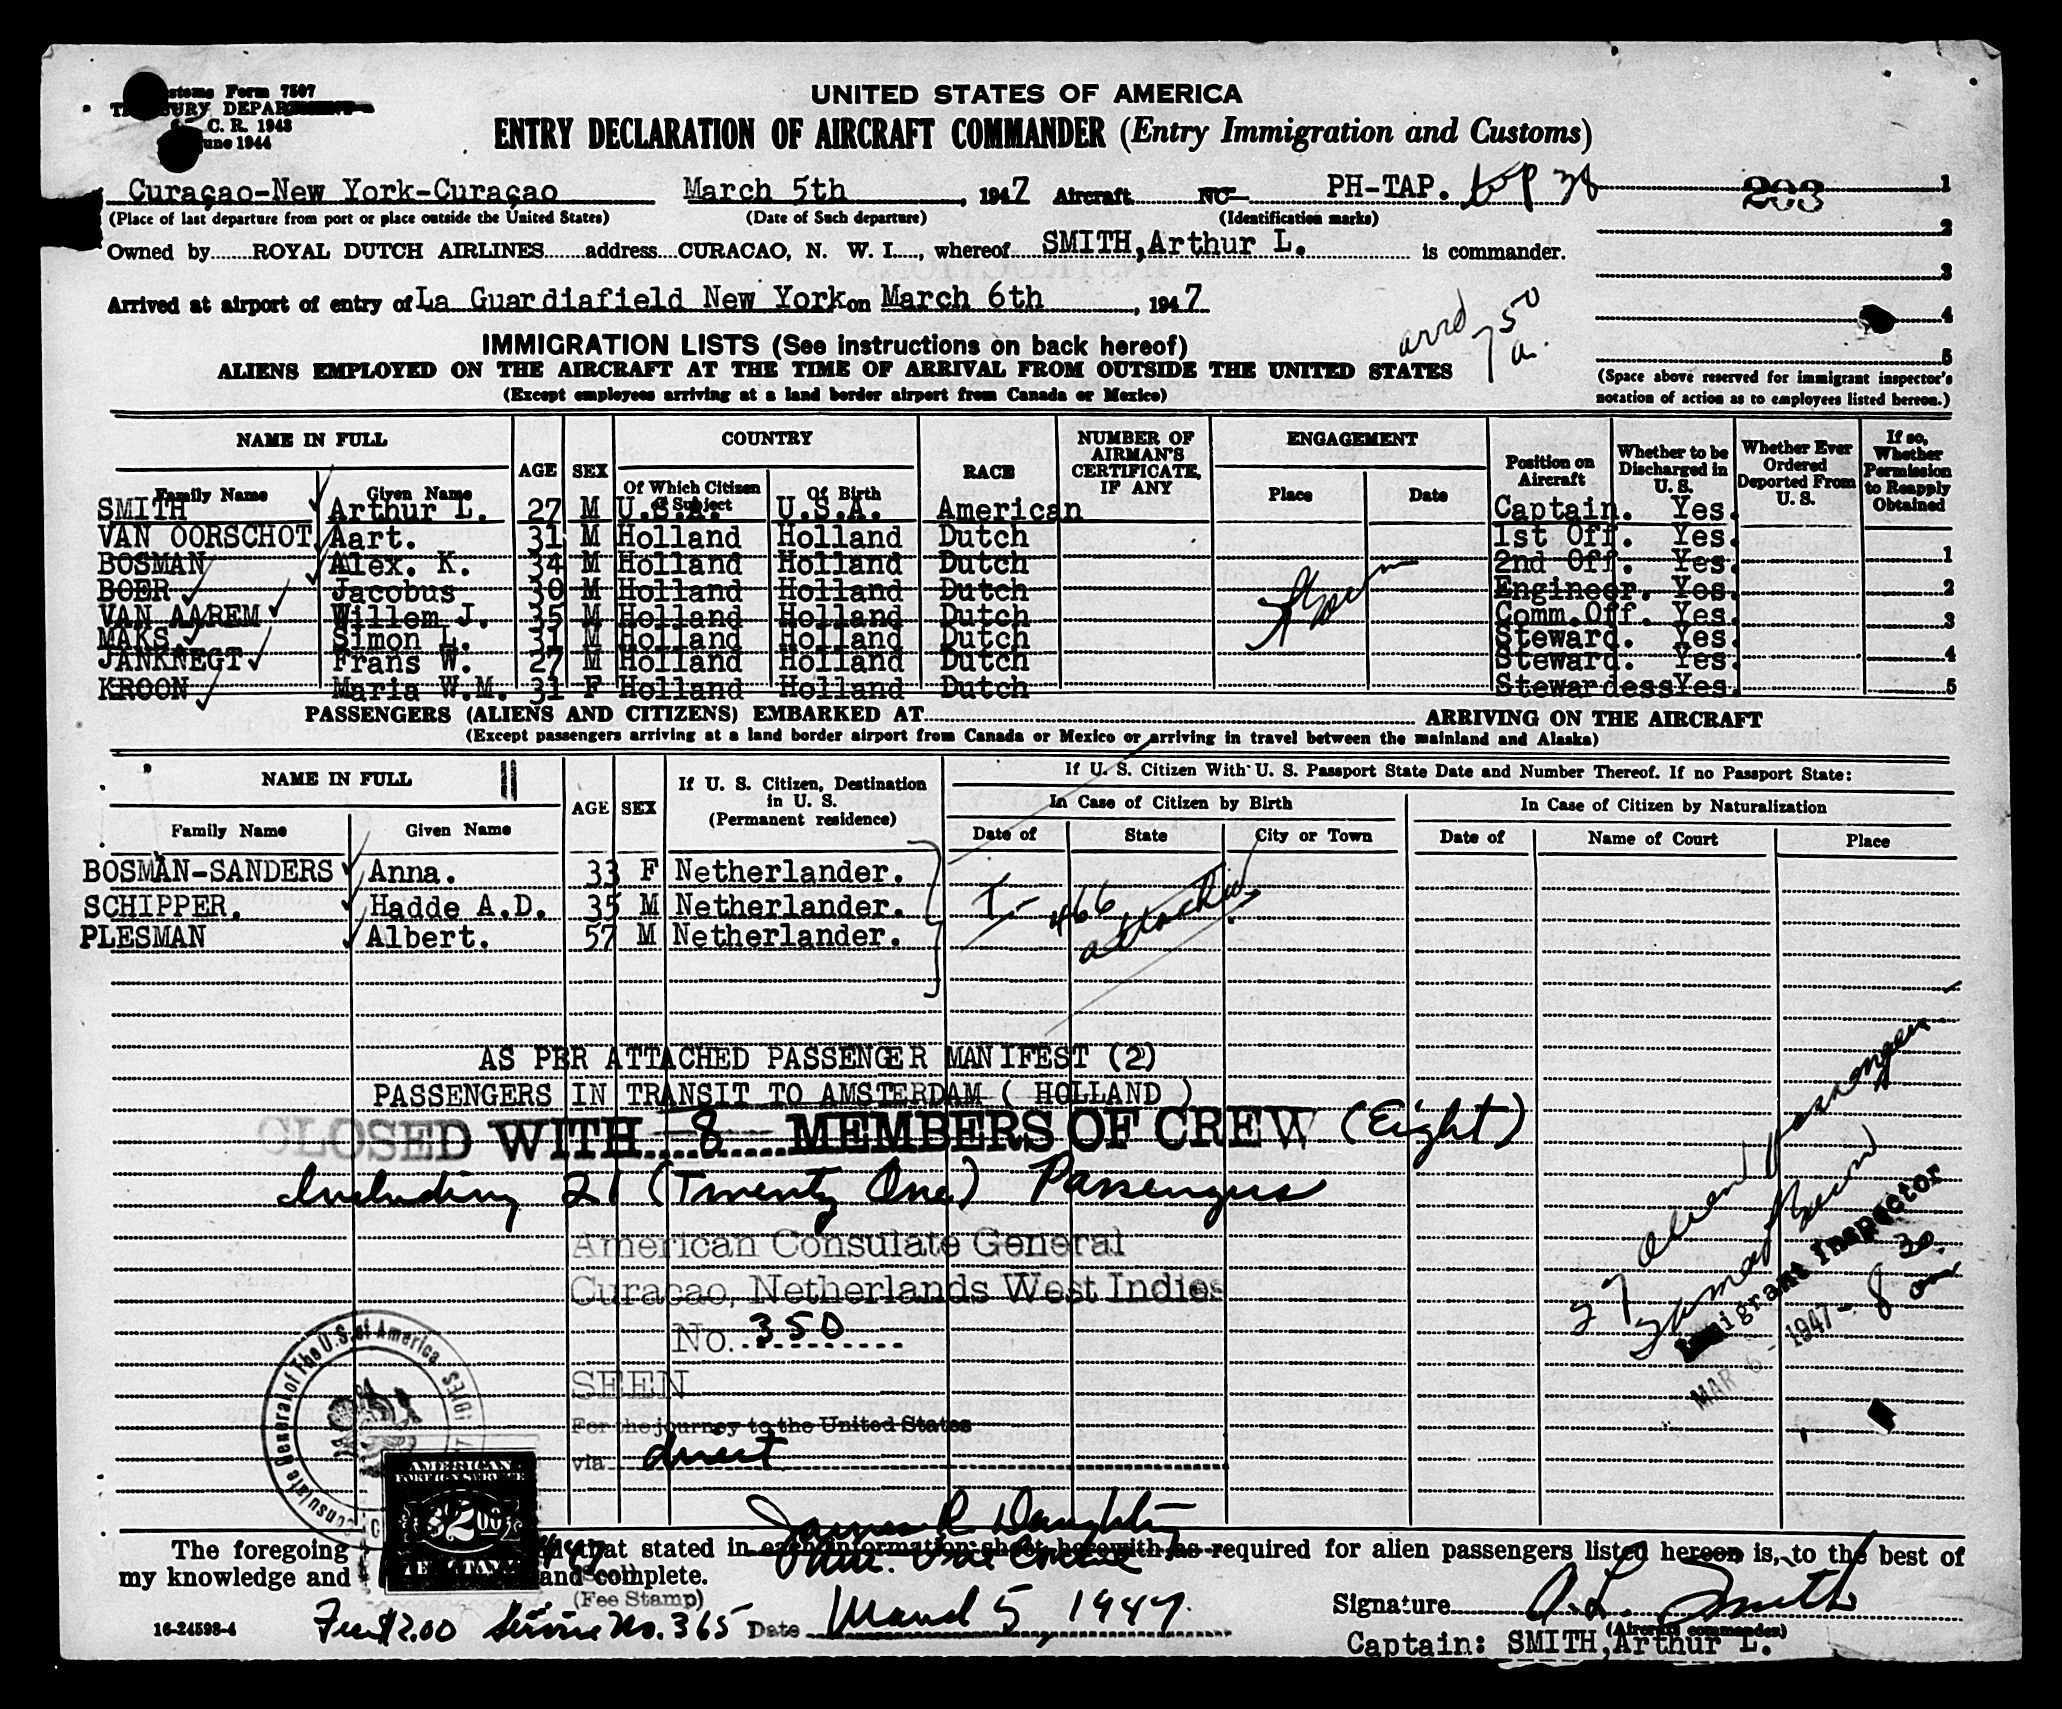 stoms Form 7507
URY DEPAR
C. R. 1943
une 1944
UNITED STATES OF AMERICA
ENTRY DECLARATION OF AIRCRAFT COMMANDER (Entry Immigration and Customs)
Curaçao-New York-Curaçao March 5th , 1947 Aircraft NC PH-TAP. top 28 203 1
(Place of last departure from port or place outside the United States) (Date of Such departure) (Identification marks)
2
Owned by ROYAL DUTCH AIRLINES address CURACAO, N. W. I. , whereof SMITH,Arthur L. is commander.
3
Arrived at airport of entry of La Guardiafield New York on March 6th , 1947
4
arrd 7 50 a.
5
IMMIGRATION LISTS (See instructions on back hereof)
ALIENS EMPLOYED ON THE AIRCRAFT AT THE TIME OF ARRIVAL FROM OUTSIDE THE UNITED STATES
(Except employees arriving at a land border airport from Canada or Mexico)
(Space above reserved for immigrant inspector's
notation of action as to employees listed hereon.)
NAME IN FULL AGE SEX COUNTRY RACE NUMBER OF AIRMAN'S CERTIFICATE, IF ANY ENGAGEMENT Position on Aircraft Whether to be Discharged in U. S. Whether Ever Ordered Deported From U. S. If so, Whether Permission to Reapply Obtained
Family Name Given Name Of Which Citizen or Subject Of Birth Place Date
SMITH Arthur L. 27 M U.S.A. U.S.A. American Captain. Yes.
VAN OORSCHOT Aart. 31 M Holland Holland Dutch 1st Off. Yes.
BOSMAN Alex. K. 34 M Holland Holland Dutch 2nd Off. Yes. 1
BOER Jacobus 30 M Holland Holland Dutch Engineer. Yes. 2
VAN AAREM Willem J. 35 M Holland Holland Dutch Comm.Off. Yes. 3
MAKS. Simon L. 31 M Holland Holland Dutch Steward. Yes.
JANKNEGT Frans W. 27 M Holland Holland Dutch Steward. Yes. 4
KROON Maria W.M. 31 F Holland Holland Dutch Stewardess Yes. 5
PASSENGERS (ALIENS AND CITIZENS) EMBARKED AT ARRIVING ON THE AIRCRAFT
(Except passengers arriving at a land border airport from Canada or Mexico or arriving in travel between the mainland and Alaska)
NAME IN FULL AGE SEX If U. S. Citizen, Destination in U. S. (Permanent residence) If U. S. Citizen With U. S. Passport State Date and Number Thereof. If no Passport State:
In Case of Citizen by Birth In Case of Citizen by Naturalization
Family Name Given Name Date of State City or Town Date of Name of Court Place
BOSMAN-SANDERS Anna. 33 F Netherlander.
SCHIPPER. Hadde A.D. 35 M Netherlander.
PLESMAN Albert. 57 M Netherlander.
I-466 attached
AS PER ATTACHED PASSENGER MANIFEST (2)
PASSENGERS IN TRANSIT TO AMSTERDAM ( HOLLAND )
CLOSED WITH 8 MEMBERS OF CREW (Eight)
Including 21 (Twenty One) Passengers
American Consulate General
Curacao, Netherlands West Indies
No. 350
SEEN
For the journey to the United States
via direct
27 alien passengers
Immigrant Inspector
MAR 6 - 1947 - 8 30 am
Consulate General of The U.S. of America
AMERICAN
FOREIGN SERVICE
$2.00
James R. Daughtry
The foregoing that stated in each information sheet herewith as required for alien passengers listed hereon is, to the best of
my knowledge and and complete.
Vice Consul
(Fee Stamp)
Signature A. L. Smith
(Aircraft commander)
16-24598-4 Fee $2.00 Service No. 365 Date March 5, 1947.
Captain: SMITH,Arthur L.